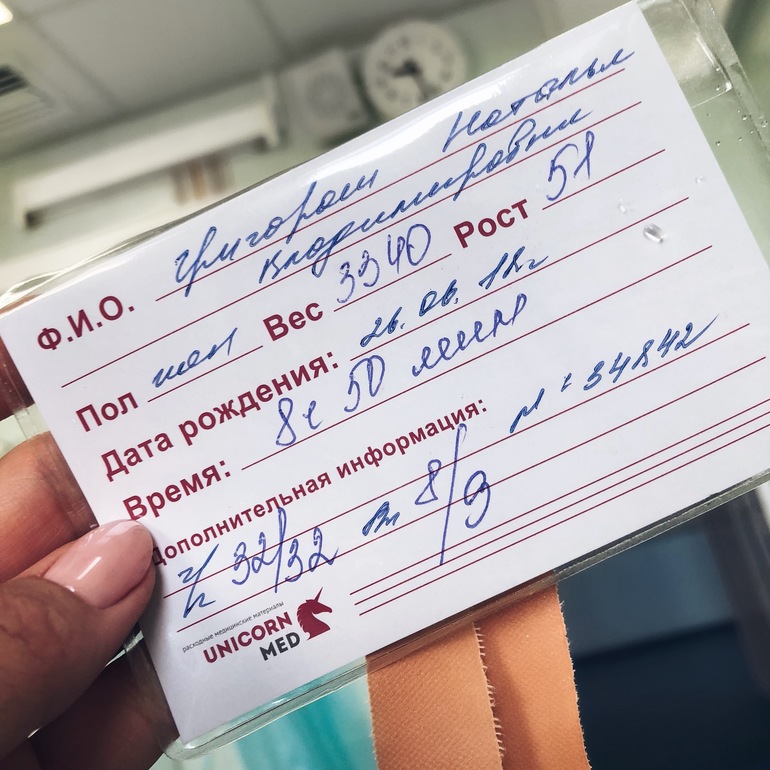 Ф.И.О. Григораш Наталья
Владимировна
Пол жен Вес 3340 Рост 51
Дата рождения: 26.06.18г
Время: 8ч 50 мин
Дополнительная информация: 34842
32/32 8/9
расходные медицинские материалы
UNICORN
MED